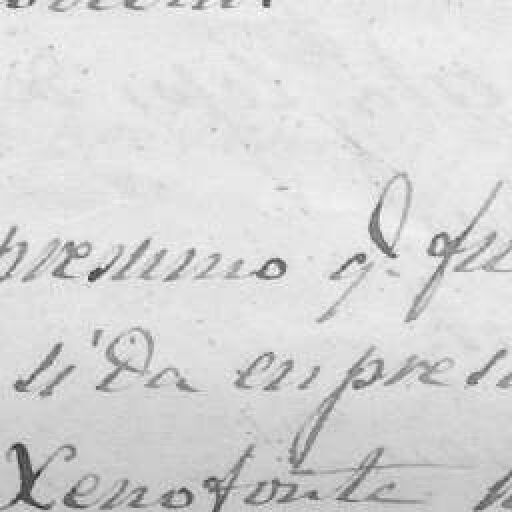 presumo q. fu
si'Da en pres
Xenofonte